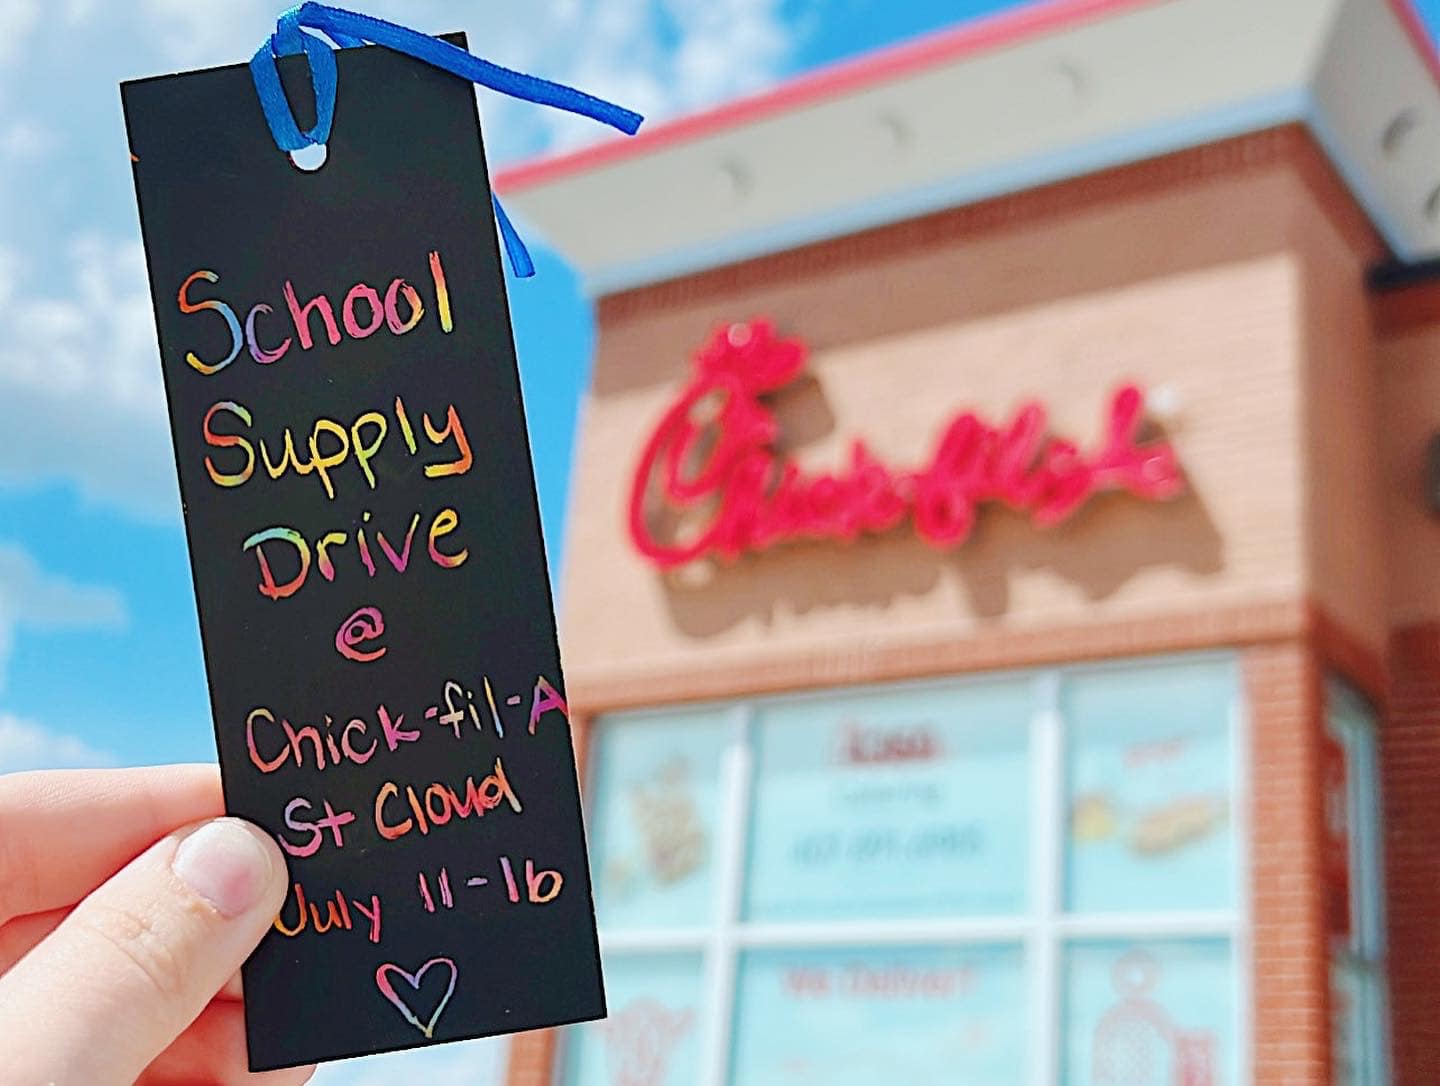 School
Supply
Drive
@
Chick-fil-A
St Cloud
July 11-16
Chick-fil-A
We Deliver!